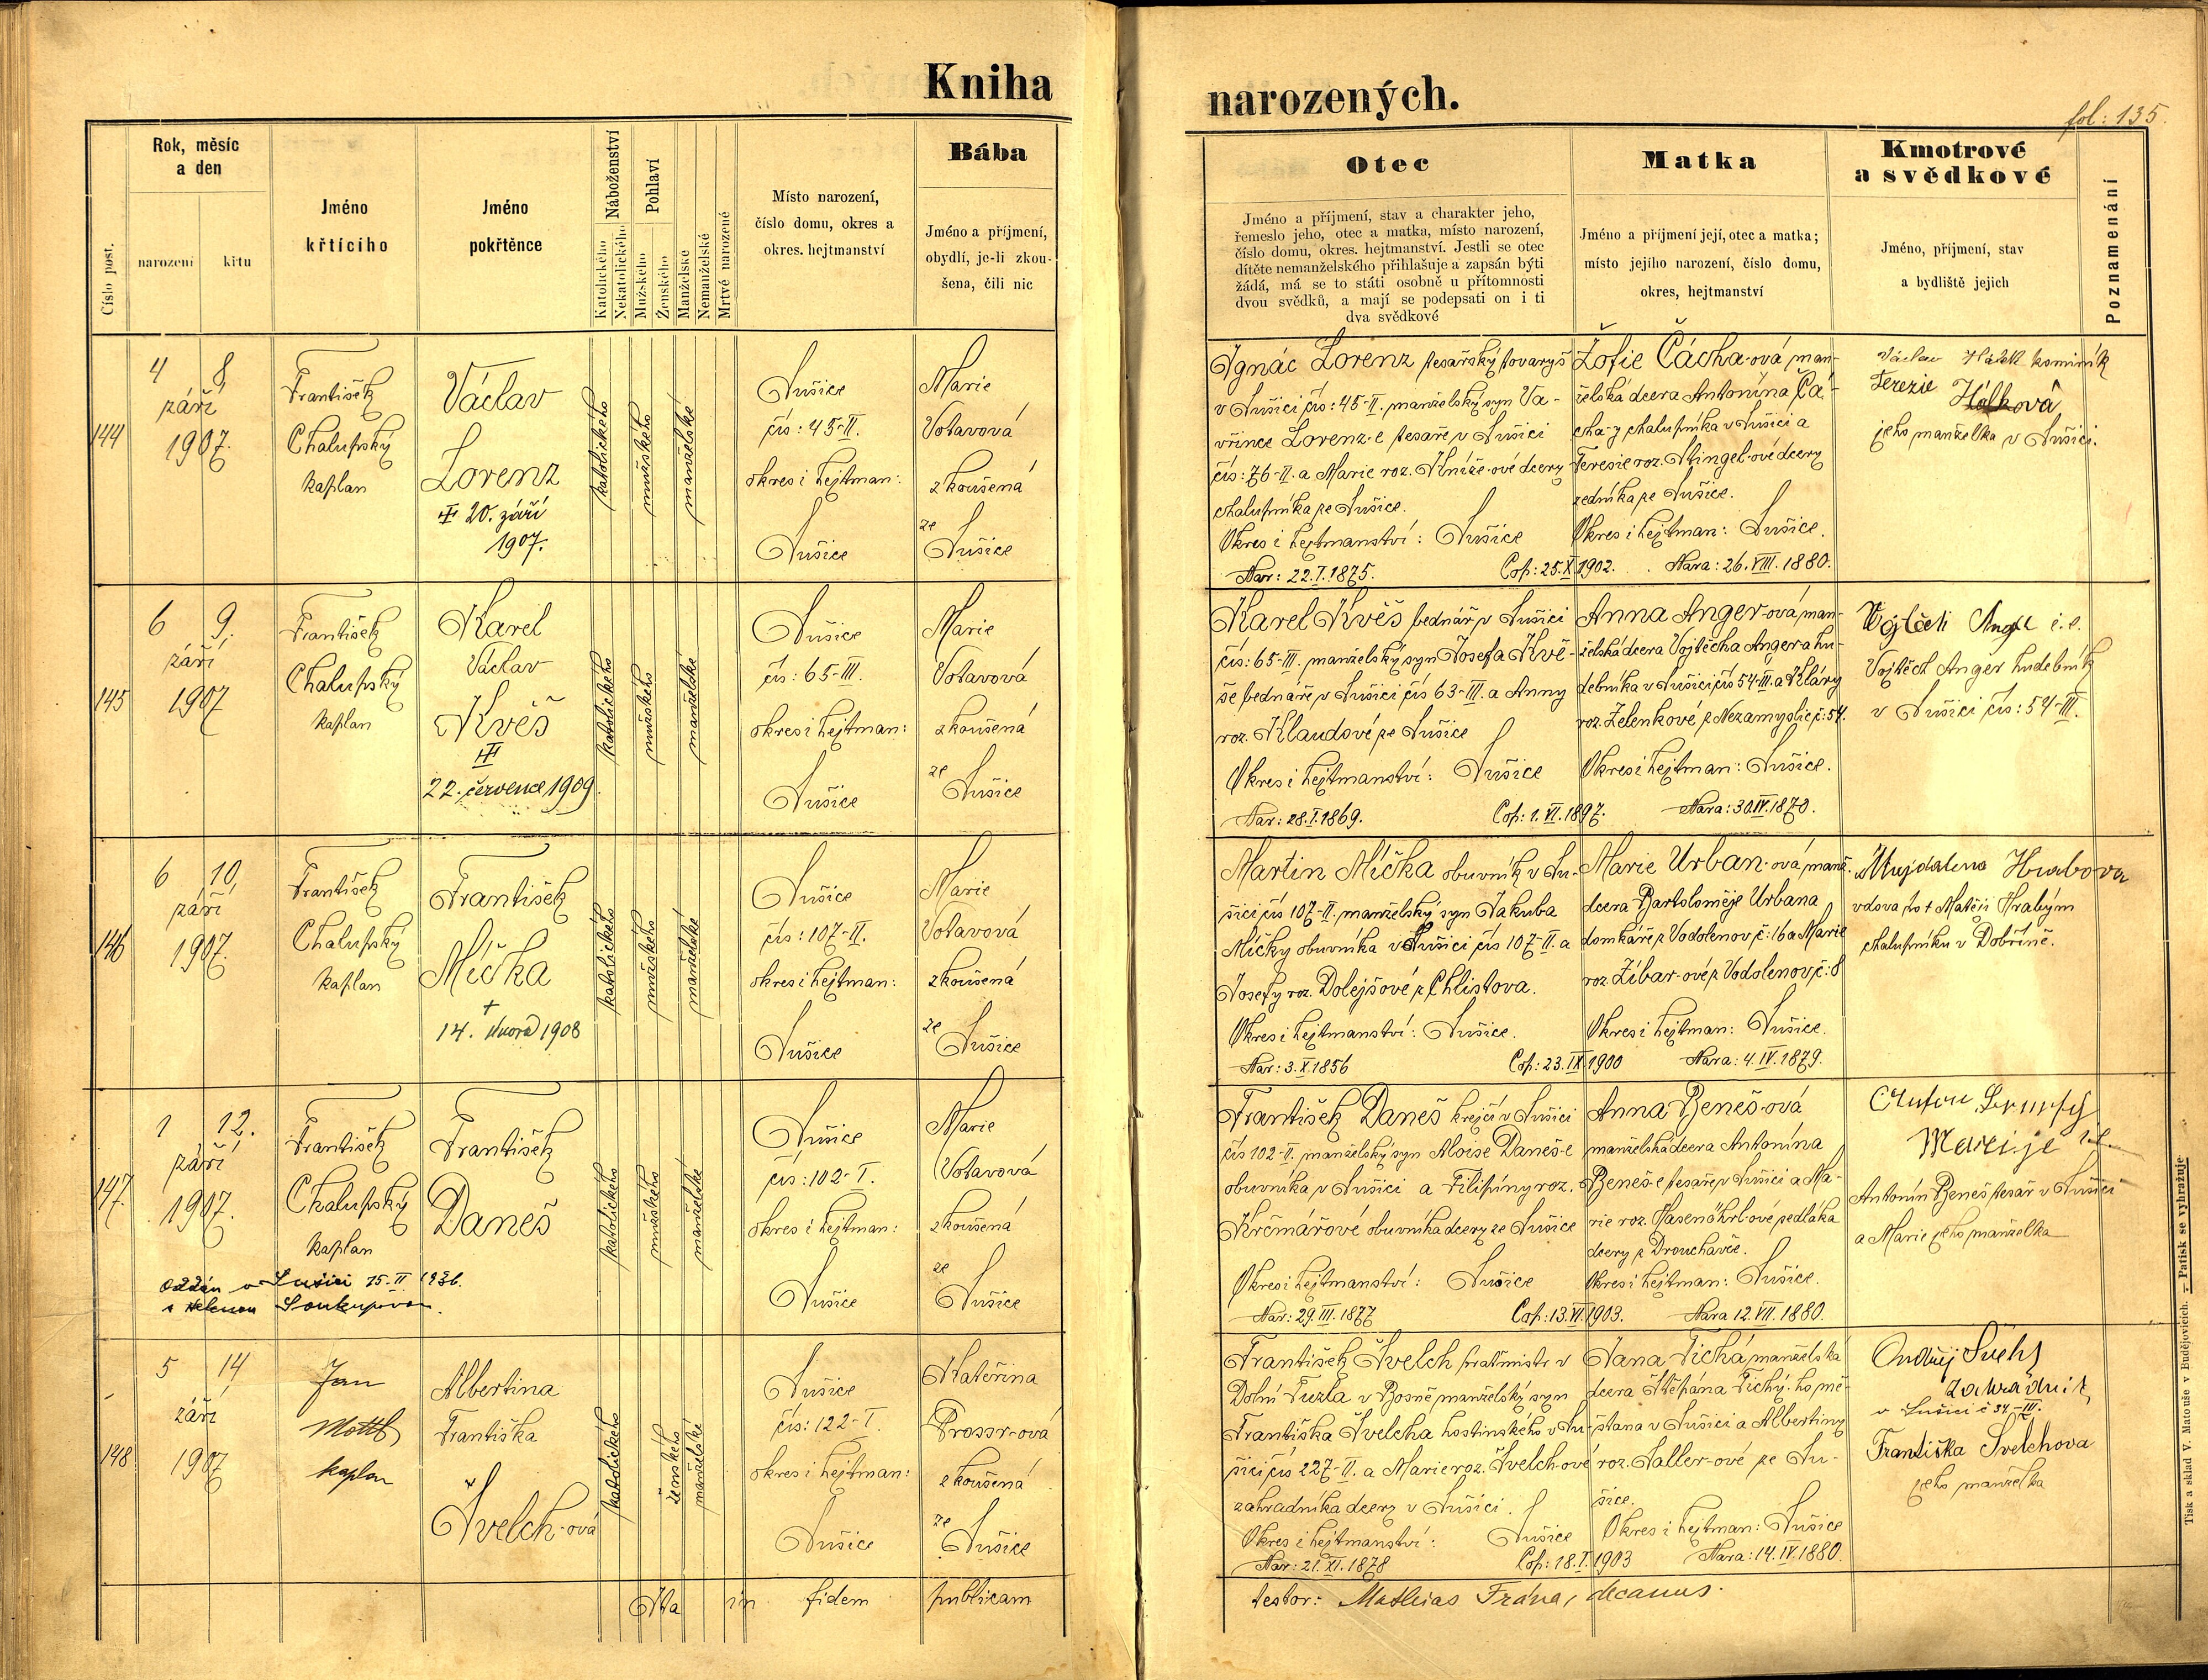 Kniha
narozených.
fol: 135.
Číslo post.
Rok, měsíc
a den
narození
křtu
Jméno
křtícího
Jméno
pokřtěnce
Náboženství
Katolického
Nekatolického
Pohlaví
Mužského
Ženského
Manželské
Nemanželské
Mrtvé narozené
Místo narození,
číslo domu, okres a
okres. hejtmanství
Bába
Jméno a příjmení,
obydlí, je-li zkou-
šena, čili nic
Otec
Jméno a příjmení, stav a charakter jeho,
řemeslo jeho, otec a matka, místo narození,
číslo domu, okres. hejtmanství. Jestli se otec
dítěte nemanželského přihlašuje a zapsán býti
žádá, má se to státi osobně u přítomnosti
dvou svědků, a mají se podepsati on i ti
dva svědkové
Matka
Jméno a příjmení její, otec a matka;
místo jejího narození, číslo domu,
okres, hejtmanství
Kmotrové
a svědkové
Jméno, příjmení, stav
a bydliště jejich
Poznamenání
144
4 8
září
1907.
František
Chalupský
kaplan
Václav
Lorenz
20. září
1907.
katolického
mužského
manželské
Sušice
čís: 45-II.
okres i hejtman:
Sušice
Marie
Votavová
zkoušená
ze
Sušice
Ignác Lorenz tesařský tovaryš
v Sušici čís: 45-II. manželský syn Va-
vřince Lorenz-e tesaře v Sušici
čís: 76-II. a Marie roz. Kníže-ové dcery
chalupníka ze Sušice.
Okres i hejtmanství: Sušice
Nar: 22.I.1875. Cop: 25.X.1902.
Žofie Čácha-ová, man-
želská dcera Antonína Čá-
cha-y chalupníka v Sušici a
Teresie roz. Stingel-ové dcery
zedníka ze Sušice.
Okres i hejtman: Sušice.
Nara: 26.VIII.1880.
Václav Hálek kominík
Terezie Hálková
jeho manželka v Sušici.
145
6 9.
září
1907
František
Chalupský
kaplan
Karel
Václav
Kvěš
22. července 1909.
katolického
mužského
manželské
Sušice
čís: 65-III.
okres i hejtman:
Sušice
Marie
Votavová
zkoušená
ze
Sušice
Karel Kvěš bednář v Sušici
čís: 65-III. manželský syn Josefa Kvě-
še bednáře v Sušici čís 63-III. a Anny
roz. Klaudové ze Sušice
Okres i hejtmanství: Sušice
Nar: 28.I.1869. Cop: 1.VI.1897.
Anna Anger-ová, man-
želská dcera Vojtěcha Angera hu-
debníka v Sušici čís 54-III. a Kláry
roz. Zelenkové z Nezamyslic č: 54.
Okres i hejtman: Sušice.
Nara: 30.IV.1870.
Vojtěch Anger hudebník
v Sušici čís: 54-III.
146
6 10.
září
1907.
František
Chalupský
kaplan
František
Míčka
+
14. února 1908
katolického
mužského
manželské
Sušice
čís: 107-II.
okres i hejtman:
Sušice
Marie
Votavová
zkoušená
ze
Sušice
Martin Míčka obuvník v Su-
šici čís 107-II. manželský syn Jakuba
Míčky obuvníka v Sušici čís 107-II. a
Josefy roz. Dolejšové z Chlistova.
Okres i hejtmanství: Sušice.
Nar: 3.X.1856 Cop: 23.IX.1900
Marie Urban-ová, manž.
dcera Bartoloměje Urbana
domkáře z Vodolenov č: 16 a Marie
roz. Žíbar-ové z Vodolenov, č: 8
Okres i hejtman: Sušice.
Nara: 4.IV.1879.
Majdalena Hrabova
vdova po + Matěji Hrabým
chalupníku v Dobříně.
147.
1 12.
září
1907.
František
Chalupský
kaplan
František
Daneš
oddán v Sušici 15-II 1936.
s Helenou Soukupovou.
katolického
mužského
manželské
Sušice
čís: 102-I.
okres i hejtman:
Sušice
Marie
Votavová
zkoušená
ze
Sušice
František Daneš krejčí v Sušici
čís 102-I. manželský syn Aloise Daneš-e
obuvníka v Sušici a Filipíny roz.
Krčmářové obuvníka dcery ze Sušice
Okres i hejtmanství: Sušice
Nar: 29.III.1877 Cop: 13.VI.1903.
Anna Beneš-ová
manželská dcera Antonína
Beneš-e tesaře v Sušici a Ma-
rie roz. Hasenöhrl-ové sedláka
dcery z Drouhavče.
Okres i hejtman: Sušice.
Nara 12.VII.1880.
Antonín Beneš tesař v Sušici
a Marie jeho manželka
148
5 14
září
1907
Jan
Mottl
kaplan
Albertina
Františka
Švelch-ová
katolického
ženského
manželské
Sušice
čís: 122-I.
okres i hejtman:
Sušice
Kateřina
Prossr-ová
zkoušená
ze
Sušice
František Švelch pratmistr v
Dolní Tuzla v Bosně manželský syn
Františka Švelcha hostinského v Su-
šici čís 227-II. a Marie roz. Švelch-ové
zahradníka dcery v Sušici.
Okres i hejtmanství: Sušice
Nar: 21.XI.1878 Cop: 18.I.1903
Jana Tichá, manželská
dcera Štěpána Tichý-ho mě-
šťana v Sušici a Albertiny
roz. Saller-ové ze Su-
šice.
Okres i hejtman: Sušice
Nara: 14.IV.1880.
Ondřej Švelch
zahradník
v Sušici č 34-III.
Františka Švelchova
jeho manželka
Ita in fidem publicam
testor: Mathias Frána, decanus.
Tisk a sklad V. Matouše v Budějovicích. — Patisk se vyhražuje